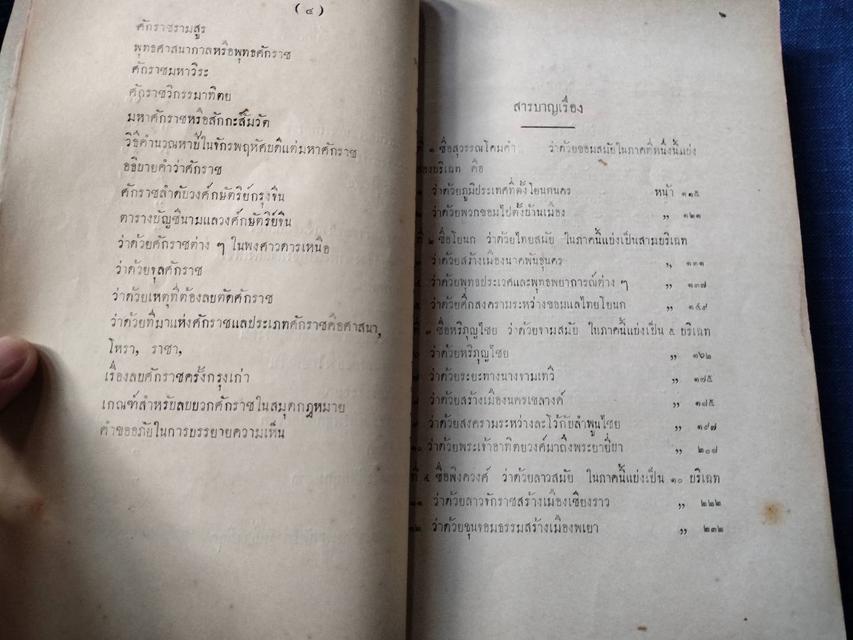 (๔)
ศักราชรามสูร
พุทธศาสนากาลหรือพุทธศักราช
ศักราชมหาวิระ
ศักราชวิกรรมาทิตย
มหาศักราชหรือสักกะสัมวัต
วิธีคำนวณหาปีในจักรพฤหัศบดีแต่มหาศักราช
อธิบายคำว่าศักราช
ศักราชลำดับวงศ์กษัตริย์กรุงจีน
ตารางบัญชีนามแลวงศ์กษัตริย์จีน
ว่าด้วยศักราชต่าง ๆ ในพงศาวดารเหนือ
ว่าด้วยจุลศักราช
ว่าด้วยเหตุที่ต้องลบตัดศักราช
ว่าด้วยที่มาแห่งศักราชแลประเภทศักราชคือศาสนา,
โหรา, ราชา,
เรื่องลบศักราชครั้งกรุงเก่า
เกณฑ์สำหรับลบบวกศักราชในสมุดกฎหมาย
คำขออภัยในการบรรยายความเห็น
สารบาญเรื่อง
๑ ชื่อสุวรรณโคมคำ ว่าด้วยขอมสมัยในภาคที่หนึ่งนี้แบ่ง
สองบริเฉท คือ
ว่าด้วยภูมิประเทศที่ตั้งโยนกนคร หน้า ๑๑๕
ว่าด้วยพวกขอมไปตั้งบ้านเมือง ,, ๑๒๑
๒ ชื่อโยนก ว่าด้วยไทยสมัย ในภาคนี้แบ่งเป็นสามบริเฉท
ว่าด้วยสร้างเมืองนาคพันธุนคร ,, ๑๓๑
ว่าด้วยพุทธประเวศและพุทธพยากรณ์ต่าง ๆ ,, ๑๓๗
ว่าด้วยศึกสงครามระหว่างขอมแลไทยโยนก ,, ๑๔๙
๓ ชื่อหริภุญไชย ว่าด้วยจามสมัย ในภาคนี้แบ่งเป็น ๕ บริเฉท
ว่าด้วยหริภุญไชย ,, ๑๖๒
ว่าด้วยระยะทางนางจามเทวี ,, ๑๗๕
ว่าด้วยสร้างเมืองนครเขลางค์ ,, ๑๘๕
ว่าด้วยสงครามระหว่างละโว้กับลำพูนไชย ,, ๑๙๗
ว่าด้วยพระเจ้าอาทิตยวงศ์มาถึงพระยายี่บา ,, ๒๐๗
๔ ชื่อพิงควงศ์ ว่าด้วยลาวสมัย ในภาคนี้แบ่งเป็น ๑๐ บริเฉท
ว่าด้วยลาวจักราชสร้างเมืองเชียงราว ,, ๒๒๒
ว่าด้วยขุนจอมธรรมสร้างเมืองพเยา ,, ๒๓๒